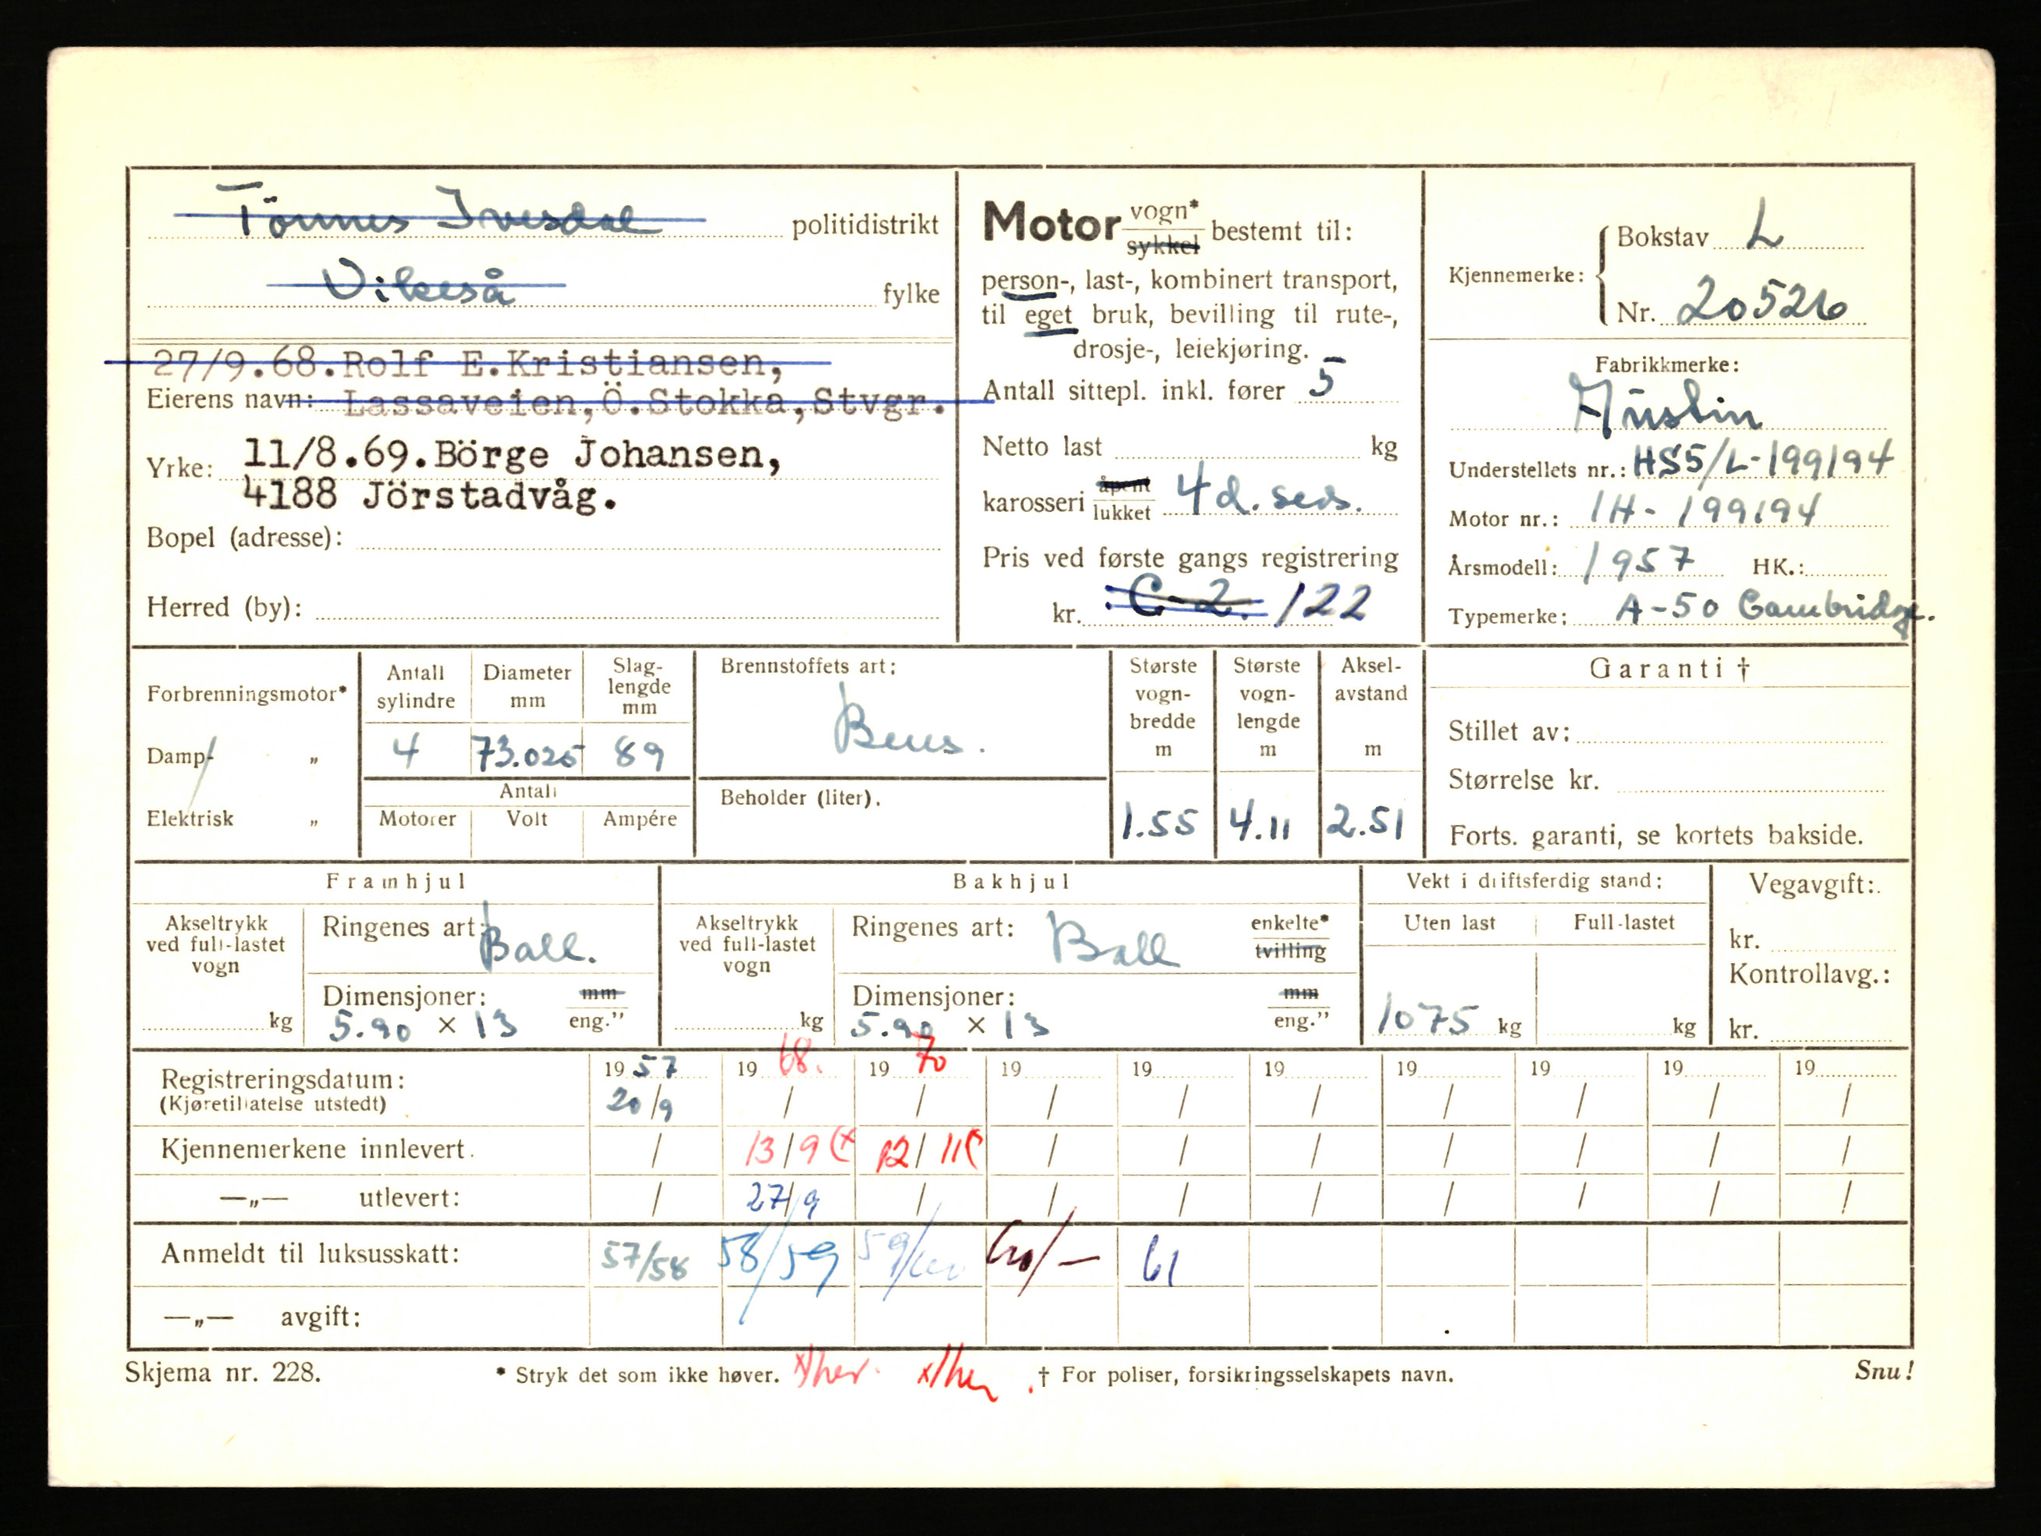 Tönnes Ivesdal politidistrikt
Vikeså fylke
27/9.68. Rolf E. Kristiansen,
Eierens navn: Lassaveien, Ö. Stokka, Stvgr.
Yrke: 11/8.69. Börge Johansen,
4188 Jörstadvåg.
Bopel (adresse):
Herred (by):
Motor vogn* sykkel bestemt til:
person-, last-, kombinert transport,
til eget bruk, bevilling til rute-,
drosje-, leiekjøring.
Antall sittepl. inkl. fører 5
Netto last kg
karosseri åpent lukket 4d. sed.
Pris ved første gangs registrering
kr. C-2. /122
Kjennemerke: Bokstav L
Nr. 20526
Fabrikkmerke:
Austin
Understellets nr.: HS5/L-199194
Motor nr.: 1H-199194
Årsmodell: 1957 HK.:
Typemerke: A-50 Cambridge.
Forbrenningsmotor*
Damp- „
Elektrisk „
Antall sylindre Diameter mm Slaglengde mm
4 73.025 89
Antall
Motorer Volt Ampére
Brennstoffets art:
Bens.
Beholder (liter).
Største vognbredde m Største vognlengde m Akselavstand m
1.55 4.11 2.51
Garanti †
Stillet av:
Størrelse kr.
Forts. garanti, se kortets bakside.
Framhjul
Akseltrykk ved full-lastet vogn
kg
Ringenes art: Ball.
Dimensjoner: mm
5.90 × 13 eng."
Bakhjul
Akseltrykk ved full-lastet vogn
kg
Ringenes art: Ball enkelte* tvilling
Dimensjoner: mm
5.90 × 13 eng."
Vekt i driftsferdig stand:
Uten last Full-lastet
1075 kg kg
Vegavgift:
kr.
Kontrollavg.:
kr.
Registreringsdatum: 1957 1968. 1970 19 19 19 19 19 19 19
(Kjøretillatelse utstedt) 20/9 / / / / / / / / /
Kjennemerkene innlevert. / 13/9 (x 12/11( / / / / / / /
—„— utlevert: / 27/9 / / / / / / / /
Anmeldt til luksusskatt: 57/58 58/59 59/60 60/— 61
—„— avgift:
Skjema nr. 228. * Stryk det som ikke høver. x/her. x/her. † For poliser, forsikringsselskapets navn. Snu!